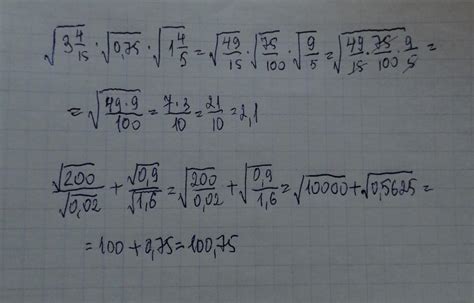 √(3 4/15) · √(0,75) · √(1 4/5) = √(49/15) · √(75/100) · √(9/5) = √(49/15 · 75/100 · 9/5) =
= √((49·9)/100) = (7·3)/10 = 21/10 = 2,1
√200/√0,02 + √0,9/√1,6 = √(200/0,02) + √(0,9/1,6) = √10000 + √0,5625 =
= 100 + 0,75 = 100,75